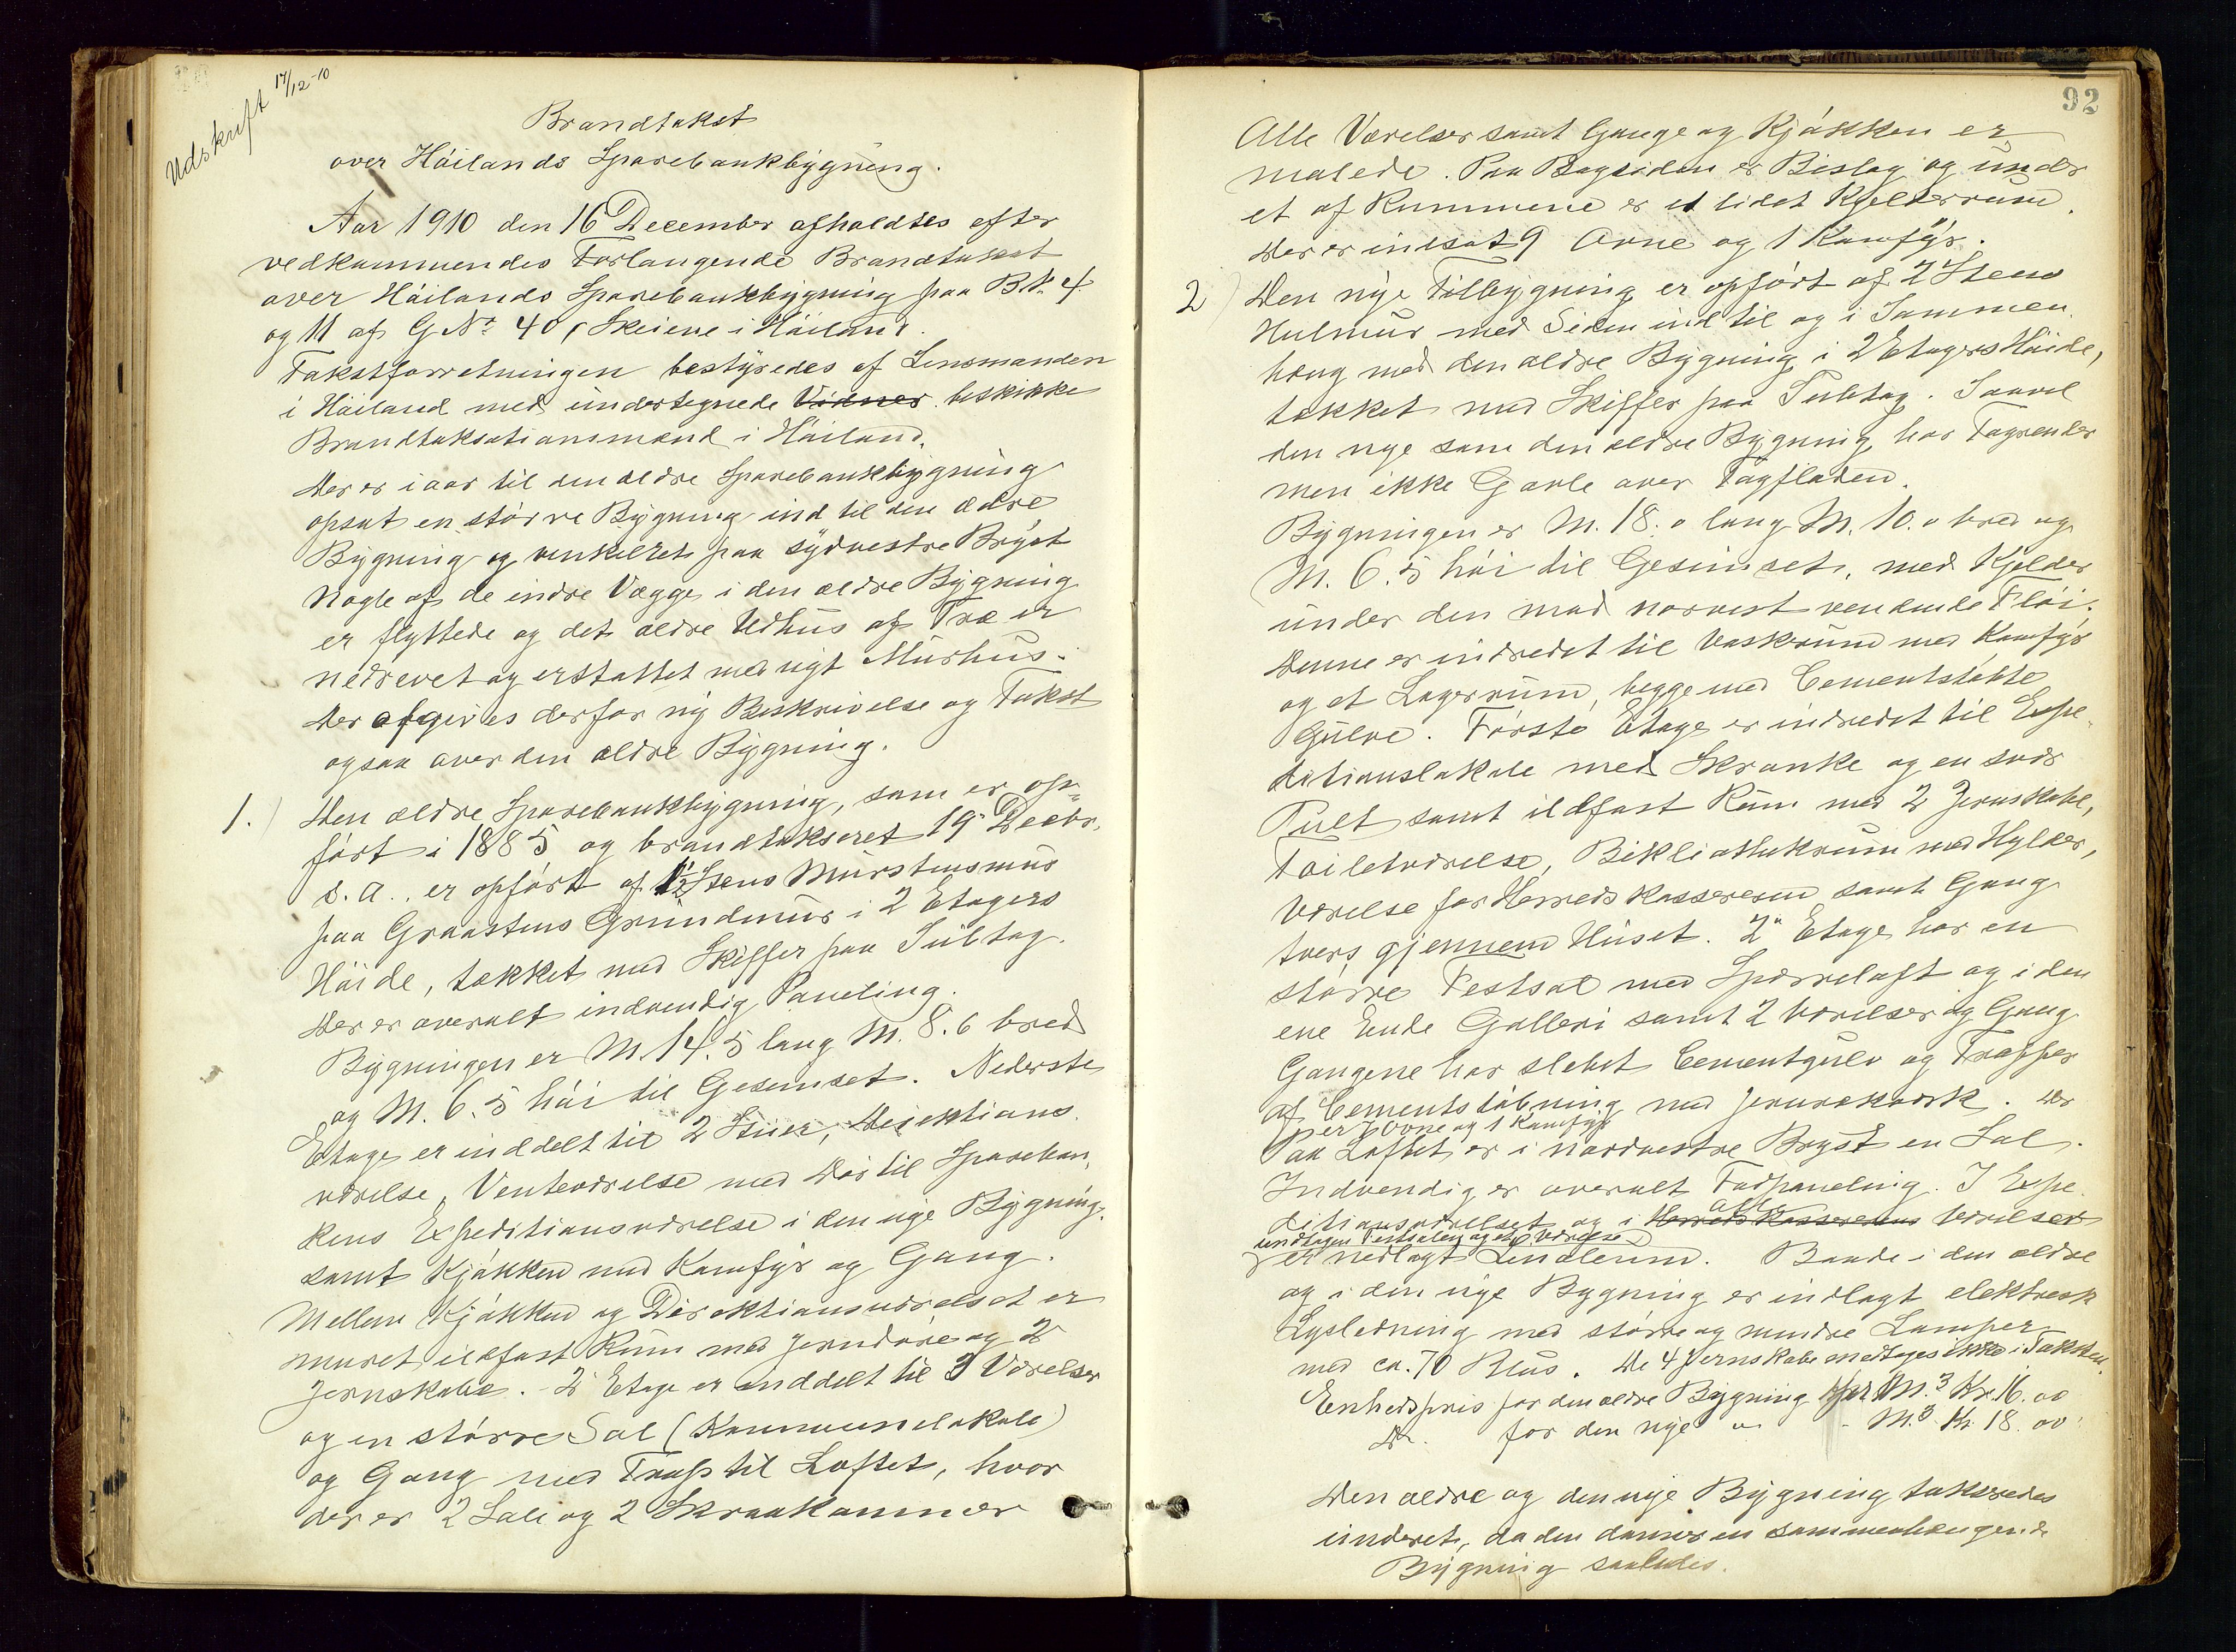 Udskrift 17/12-10
Brandtakst
over Höilands Sparebankbygning.
Aar 1910 den 16 December afholdtes efter
vedkommendes Forlangende Brandtakst
over Höilands Sparebankbygning paa B.N. 4
og 11 af G.No 40, Skeiene i Höiland.
Takstforretningen bestyredes af Lensmanden
i Höiland med undertegnede Vidner beskikke
Brandtakstationsmænd i Höiland.
Der er i aar til den ældre Sparebankbygning
opsat en större Bygning ind til den ældre
Bygning og vinkelret paa sydvestre Bryst
Nogle af de indre Vægge i den ældre Bygning
er flyttede og det ældre Udhus af Træ er
nedrevet og erstattet med nyt Murhus.
Der afgives derfor ny Beskrivelse og Takst
ogsaa over den ældre Bygning.
1.) Den ældre Sparebankbygning, som er op=
fört i 1885 og brandtakseret 19. Decbr.
s.a., er opfört af 1½ Stens Murstensmur
paa Graastens Grundmur i 2 Etagers
Höide, tækket med Skiffer paa Sultag.
Der er overalt indvendig Paneling.
Bygningen er M. 14.5 lang M. 8.6 bred
og M. 6.5 höi til Gesimset. Nederste
Etage er inddelt til 2 Stuer, Direktions
værelse, Venteværelse med Dör til Spareban,
kens Expeditionsværelse i den nye Bygning,
samt Kjökken med Komfyr og Gang.
Mellem Kjökken og Direktionsværelset er
muret ildfast Rum med Jerndöre og 2
Jernskabe. - 2' Etage er inddelt til 3 Værelser
og en större Sal (Kommunelokale)
og Gang med Trap til Loftet, hvor
der er 2 Sale og 2 Skraakammer
92
Alle Værelser samt Gange og Kjökken er
malede. Paa Bagsiden er Bislag og under
et af Rummene er et lidet Kjelderrum.
Der er indsat 9 Ovne og 1 Komfyr.
2) Den nye Tilbygning er opfört af 2 Stens
Hulmur med Siden ind til og i Sammen
hæng med den ældre Bygning i 2 Etagers Höide,
tækket med Skiffer paa Sultag. Saavel
den nye som den ældre Bygning har Tagrender
men ikke Gavle over Tagfladen.
Bygningen er M. 18.0 lang M. 10.0 bred og
M. 6.5 höi til Gesimset, med Kjelder
under den mod norvest vendende Flöi.
Denne er indredet til Vaskerum med Komfyr
og et Lagerrum, begge med Cementstøbte
Gulve. Förste Etage er indredet til Expe-
ditionslokale med Skranke og en svær
Pult samt ildfast Rum med 2 Jernskabe,
Toiletværelse, Bibliothekrum med Hylder,
Værelse for Herredskassereren samt Gang
tvers gjennem Huset. 2" Etage har en
större Festsal med Sperreloft og i den
ene Ende Galleri samt 2 Værelser og Gang
Gangene har slebet Cementgulv og Trapper
af Cementstöbning med Jernrekværk. Der
er 7 Ovne og 1 Komfyr
Paa Loftet er i nordvestre Bryst en Sal.
Indvendig er overalt Fadpaneling. I Expe
ditionsværelset og i Herredskassererens alle Værelser
undtagen Festsalen og et Værelse
er nedlagt Linoleum. Baade i den ældre
og i den nye Bygning er indlagt elektrisk
Lysledning med större og mindre Lamper
med ca. 70 Blus. De 4 Jernskabe medtages ikke i Taksten.
Enhedspris for den ældre Bygning per M.3 Kr. 16.00
Do. for den nye " - M.3 Kr 18.00
Den ældre og den nye Bygning takseredes
underet, da den danner en sammenhængende
Bygning saaledes.